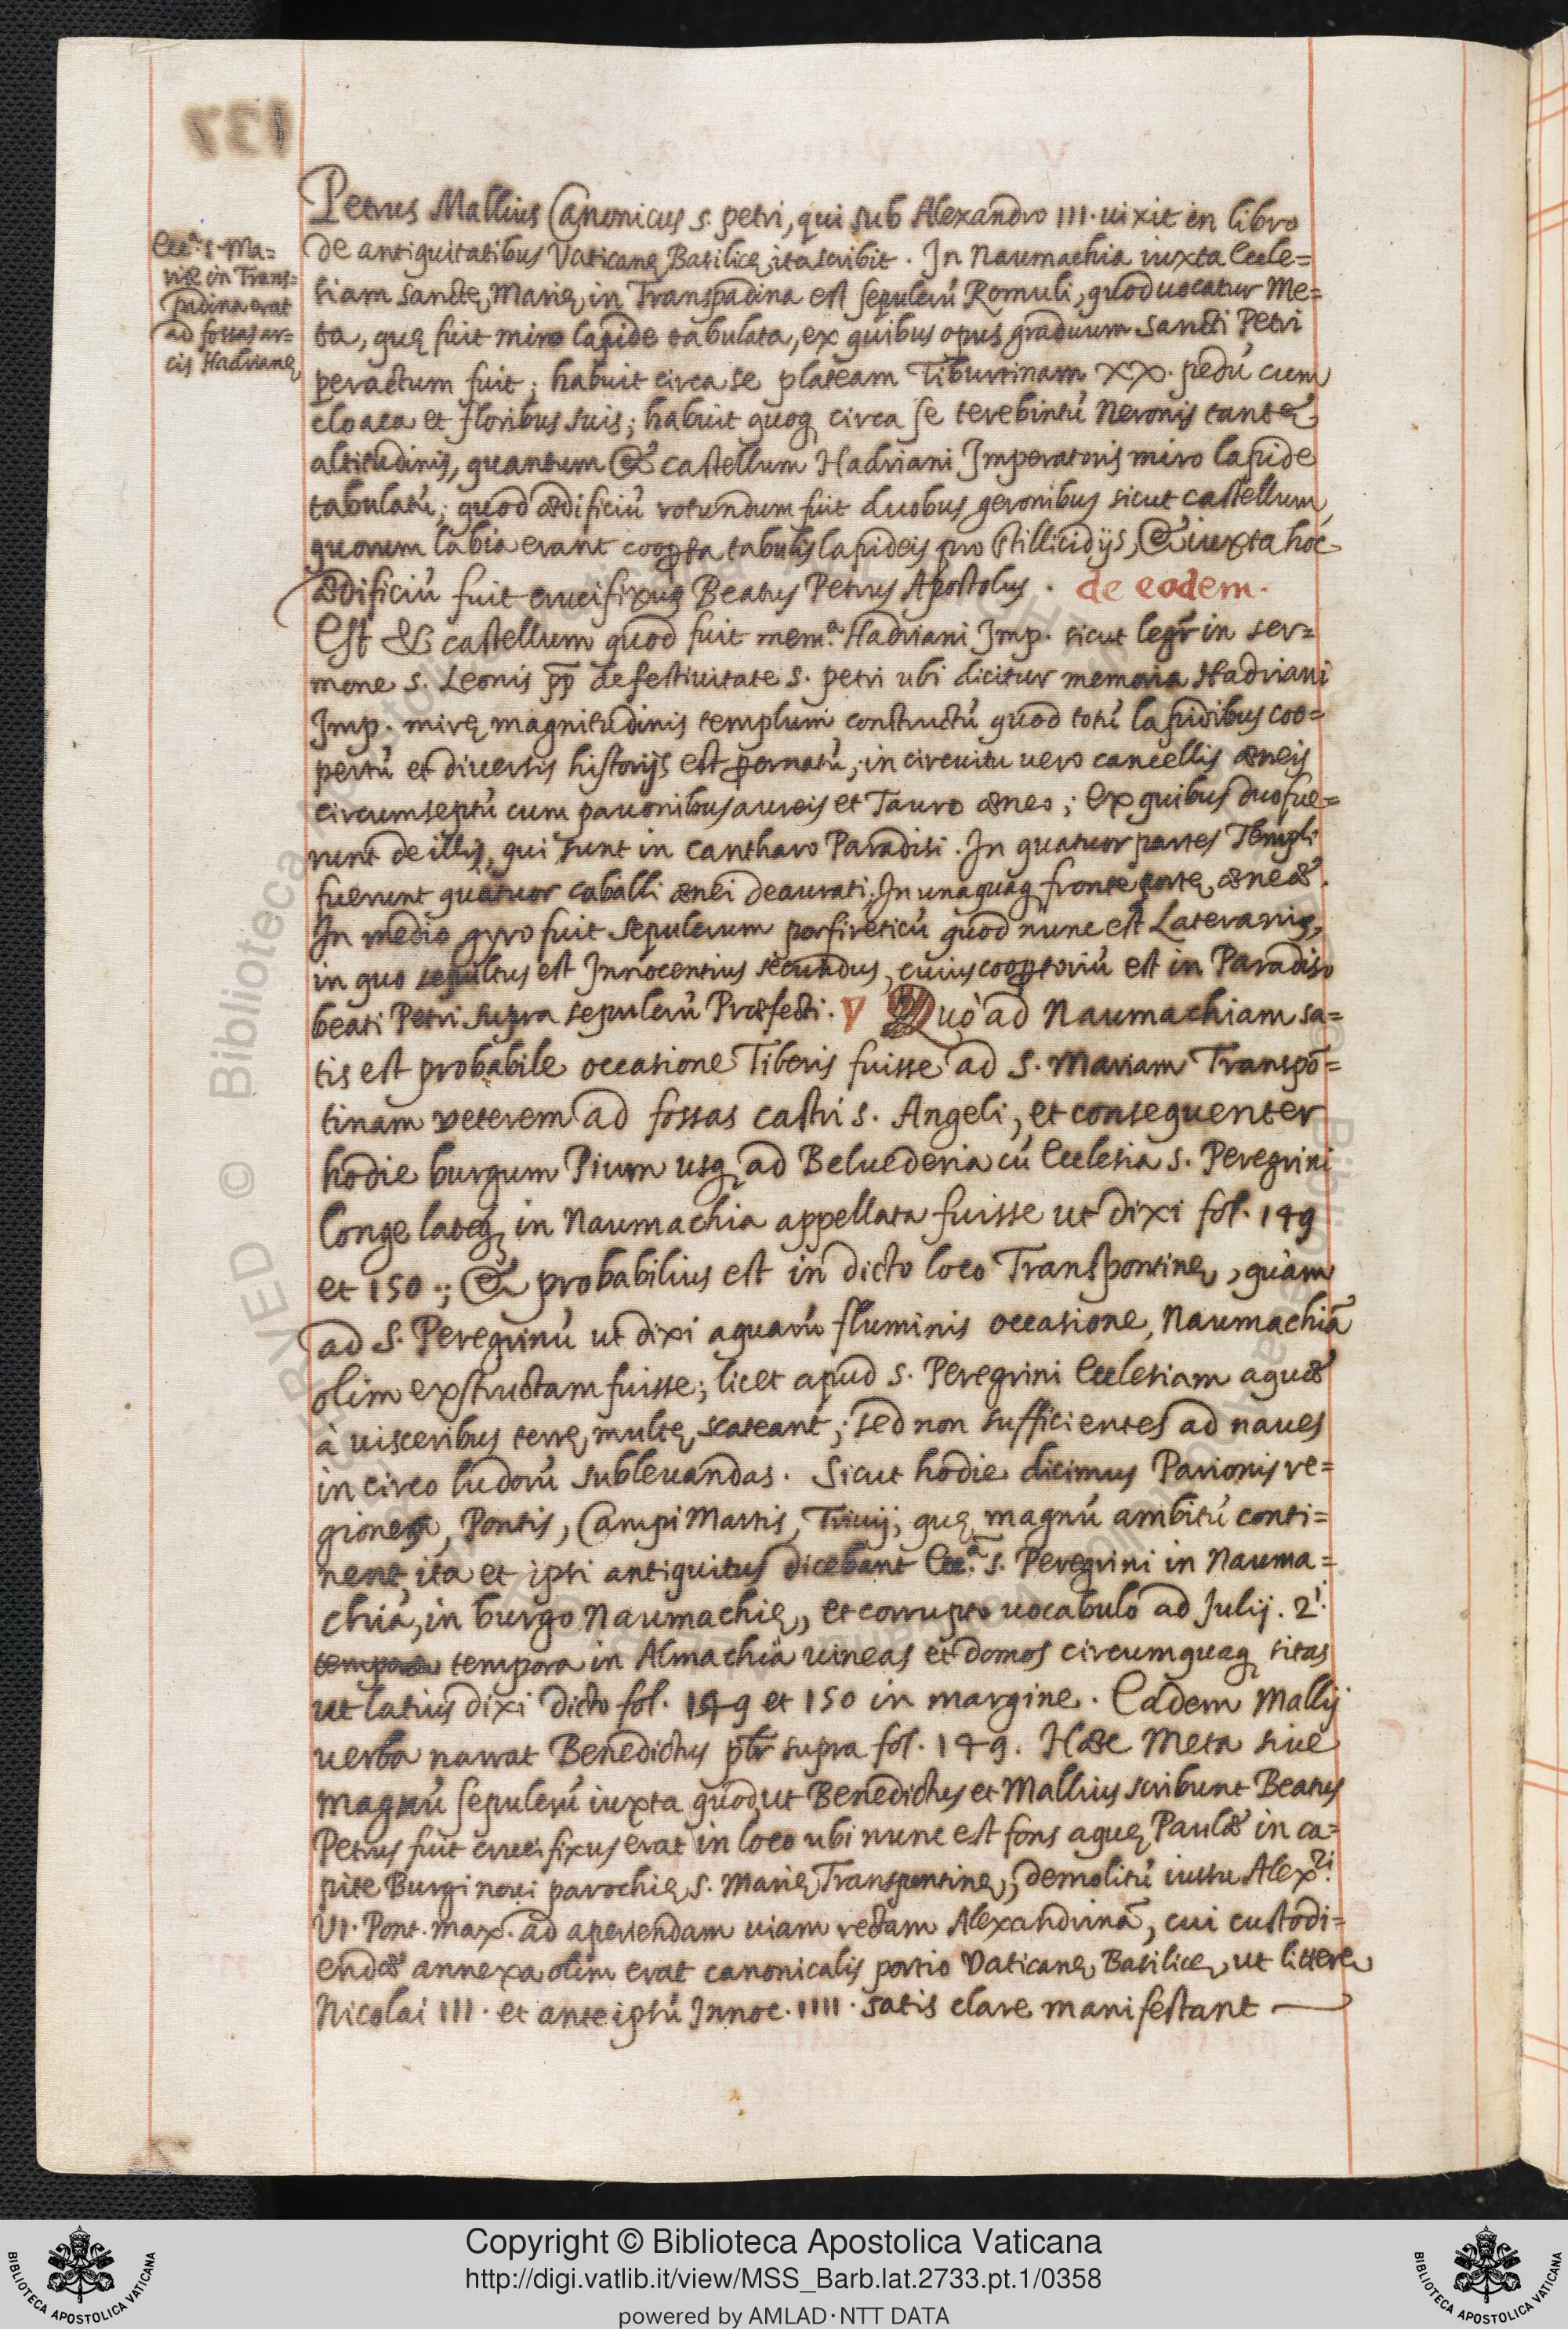 137
Petrus Mallius Canonicus s. petri, qui sub Alexandro III. uixit in libro
de antiquitatibus Vaticanę Basilicę, ita scribit. In Naumachia iuxta Eccle=
siam sanctę Marię in Transpadina est sepulcrū Romuli, quod uocatur Me=
ta, quę fuit miro lapide tabulata, ex quibus opus graduum sancti Petri
peractum fuit; habuit circa se plateam Tiburtinam XX. pedū cum
cloaca et floribus suis; habuit quoq circa se terebintū Neronis tantæ
altitudinis, quantum & castellum Hadriani Imperatoris miro lapide
tabulatū; quod ædificiū rotundum fuit duobus geronibus sicut castellum,
quorum labia erant coopta tabulis lapideis pro stillicidijs, & iuxta hoc
ædificiū fuit crucifixus Beatus Petrus Apostolus. de eodem.
Est & castellum quod fuit mem.ª Hadriani Imp. sicut legr̄ in ser=
mone s. Leonis pp̄ de festiuitate s. petri ubi dicitur memoria Hadriani
Imp. mirę magnitudinis templum constructū quod totū lapidibus coo=
pertū et diuersis historijs est pornatū; in circuitu uero cancellis æneis
circumseptū cum pauonibus aureis et Tauro æneo; ex quibus duo fue=
runt de illis, qui sunt in cantharo Paradisi. In quatuor partes Templi
fuerunt quatuor caballi ænei deaurati. In unaquaq fronte portę æneæ.
In medio gyro fuit sepulcrum porfireticū quod nunc est Lateranis,
in quo sepultus est Innocentius secundus, cuius cooptoriū est in Paradiso
beati Petri supra sepulcrū Præfecti. Quò ad Naumachiam sa=
tis est probabile occasione Tiberis fuisse ad S. Mariam Transpō=
tinam veterem ad fossas castri s. Angeli, et consequenter
hodie burgum Pium usq ad Beluederia cū Ecclesia s. Peregrini
longe lateq in Naumachia appellata fuisse ut dixi fol. 149
et 150.; & probabilius est in dicto loco Transpontinę, quàm
ad S. Peregrinū ut dixi aquarū fluminis occasione, Naumachiā
olim exstructam fuisse; licet apud s. Peregrini Ecclesiam aquæ
à uisceribus terrę multę scateant; sed non sufficientes ad naues
in circo ludorū subleuandas. Sicut hodie dicimus Parionis re=
gionem, Pontis, Campi Martis, Triuij; quę magnū ambitū conti=
nent, ita et ipsi antiquitus dicebant Ecc.ª s. Peregrini in Nauma=
chia, in burgo Naumachię, et corrupto uocabulo ad Julij. 2.i
tempora tempora in Almachia uineas et domos circumquaq sitas
ut latius dixi dicto fol. 149 et 150 in margine. Eadem Mallij
uerba narrat Benedictus pbr̄ supra fol. 149. Hæc Meta siue
magnū sepulcrū iuxta quod, ut Benedictus et Mallius scribunt Beatus
Petrus fuit crucifixus erat in loco ubi nunc est fons aquę Paulæ in ca=
pite Burgi noui parochię s. Marię Transpontinę, demolitū iussu Alex.ri
VI. Pont. max. ad aperiendam uiam rectam Alexandrinā, cui custodi=
endæ annexa olim erat canonicalis portio Vaticanę Basilicę, ut litterę
Nicolai III. et ante ipsū Innoc. IIII. satis clare manifestant
Ecc.ª S. Ma=
rię in Trans=
padina erat
ad fossas ar=
cis Hadrianę
Copyright © Biblioteca Apostolica Vaticana
http://digi.vatlib.it/view/MSS_Barb.lat.2733.pt.1/0358
powered by AMLAD·NTT DATA
BIBLIOTECA APOSTOLICA VATICANA
BIBLIOTECA APOSTOLICA VATICANA